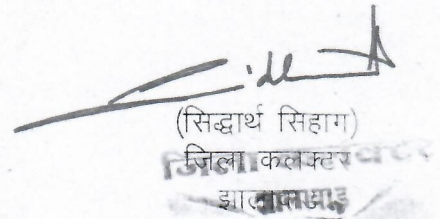 (सिद्धार्थ सिहाग)
जिला कलक्टर
झालावाड़